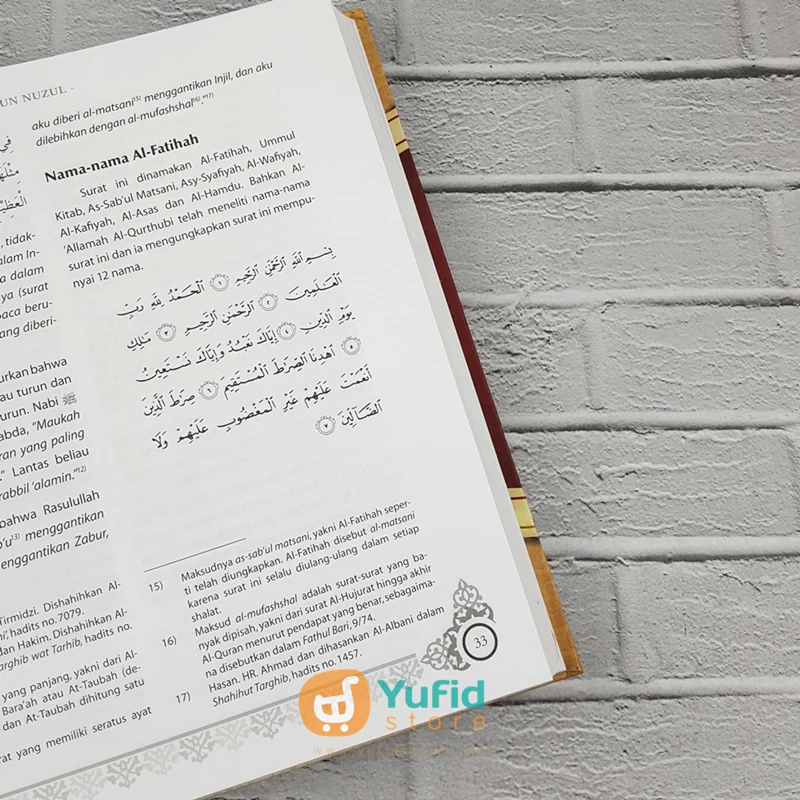 UN NUZUL -
, tidak-
alam In-
a dalam
nya (surat
baca beru-
ang diberi-
urkan bahwa
au turun dan
urun. Nabi ﷺ
abda, “Maukah
ran yang paling
.” Lantas beliau
rabbil ‘alamin.”12)
bahwa Rasulullah
b’u[3) menggantikan
enggantikan Zabur,
Tirmidzi. Dishahihkan Al-
hadits no. 7079.
dan Hakim. Dishahihkan Al-
arghib wat Tarhib, hadits no.
yang panjang, yakni dari Al-
Bara'ah atau At-Taubah (de-
dan At-Taubah dihitung satu
rat yang memiliki seratus ayat
aku diberi al-matsani15) menggantikan Injil, dan aku
dilebihkan dengan al-mufashshal16).”17)
Nama-nama Al-Fatihah
Surat ini dinamakan Al-Fatihah, Ummul
Kitab, As-Sab'ul Matsani, Asy-Syafiyah, Al-Wafiyah,
Al-Kafiyah, Al-Asas dan Al-Hamdu. Bahkan Al-
‘Allamah Al-Qurthubi telah meneliti nama-nama
surat ini dan ia mengungkapkan surat ini mempu-
nyai 12 nama.
بِسْمِ ٱللَّهِ ٱلرَّحْمَٰنِ ٱلرَّحِيمِ ١ ٱلْحَمْدُ لِلَّهِ رَبِّ
ٱلْعَٰلَمِينَ ٢ ٱلرَّحْمَٰنِ ٱلرَّحِيمِ ٣ مَٰلِكِ
يَوْمِ ٱلدِّينِ ٤ إِيَّاكَ نَعْبُدُ وَإِيَّاكَ نَسْتَعِينُ
٥ ٱهْدِنَا ٱلصِّرَٰطَ ٱلْمُسْتَقِيمَ ٦ صِرَٰطَ ٱلَّذِينَ
أَنْعَمْتَ عَلَيْهِمْ غَيْرِ ٱلْمَغْضُوبِ عَلَيْهِمْ وَلَا
ٱلضَّآلِّينَ ٧
15) Maksudnya as-sab'ul matsani, yakni Al-Fatihah seper-
ti telah diungkapkan. Al-Fatihah disebut al-matsani
karena surat ini selalu diulang-ulang dalam setiap
shalat.
16) Maksud al-mufashshal adalah surat-surat yang ba-
nyak dipisah, yakni dari surat Al-Hujurat hingga akhir
Al-Quran menurut pendapat yang benar, sebagaima-
na disebutkan dalam Fathul Bari, 9/74.
17) Hasan. HR. Ahmad dan dihasankan Al-Albani dalam
Shahihut Targhib, hadits no. 1457.
33
Yufid
store